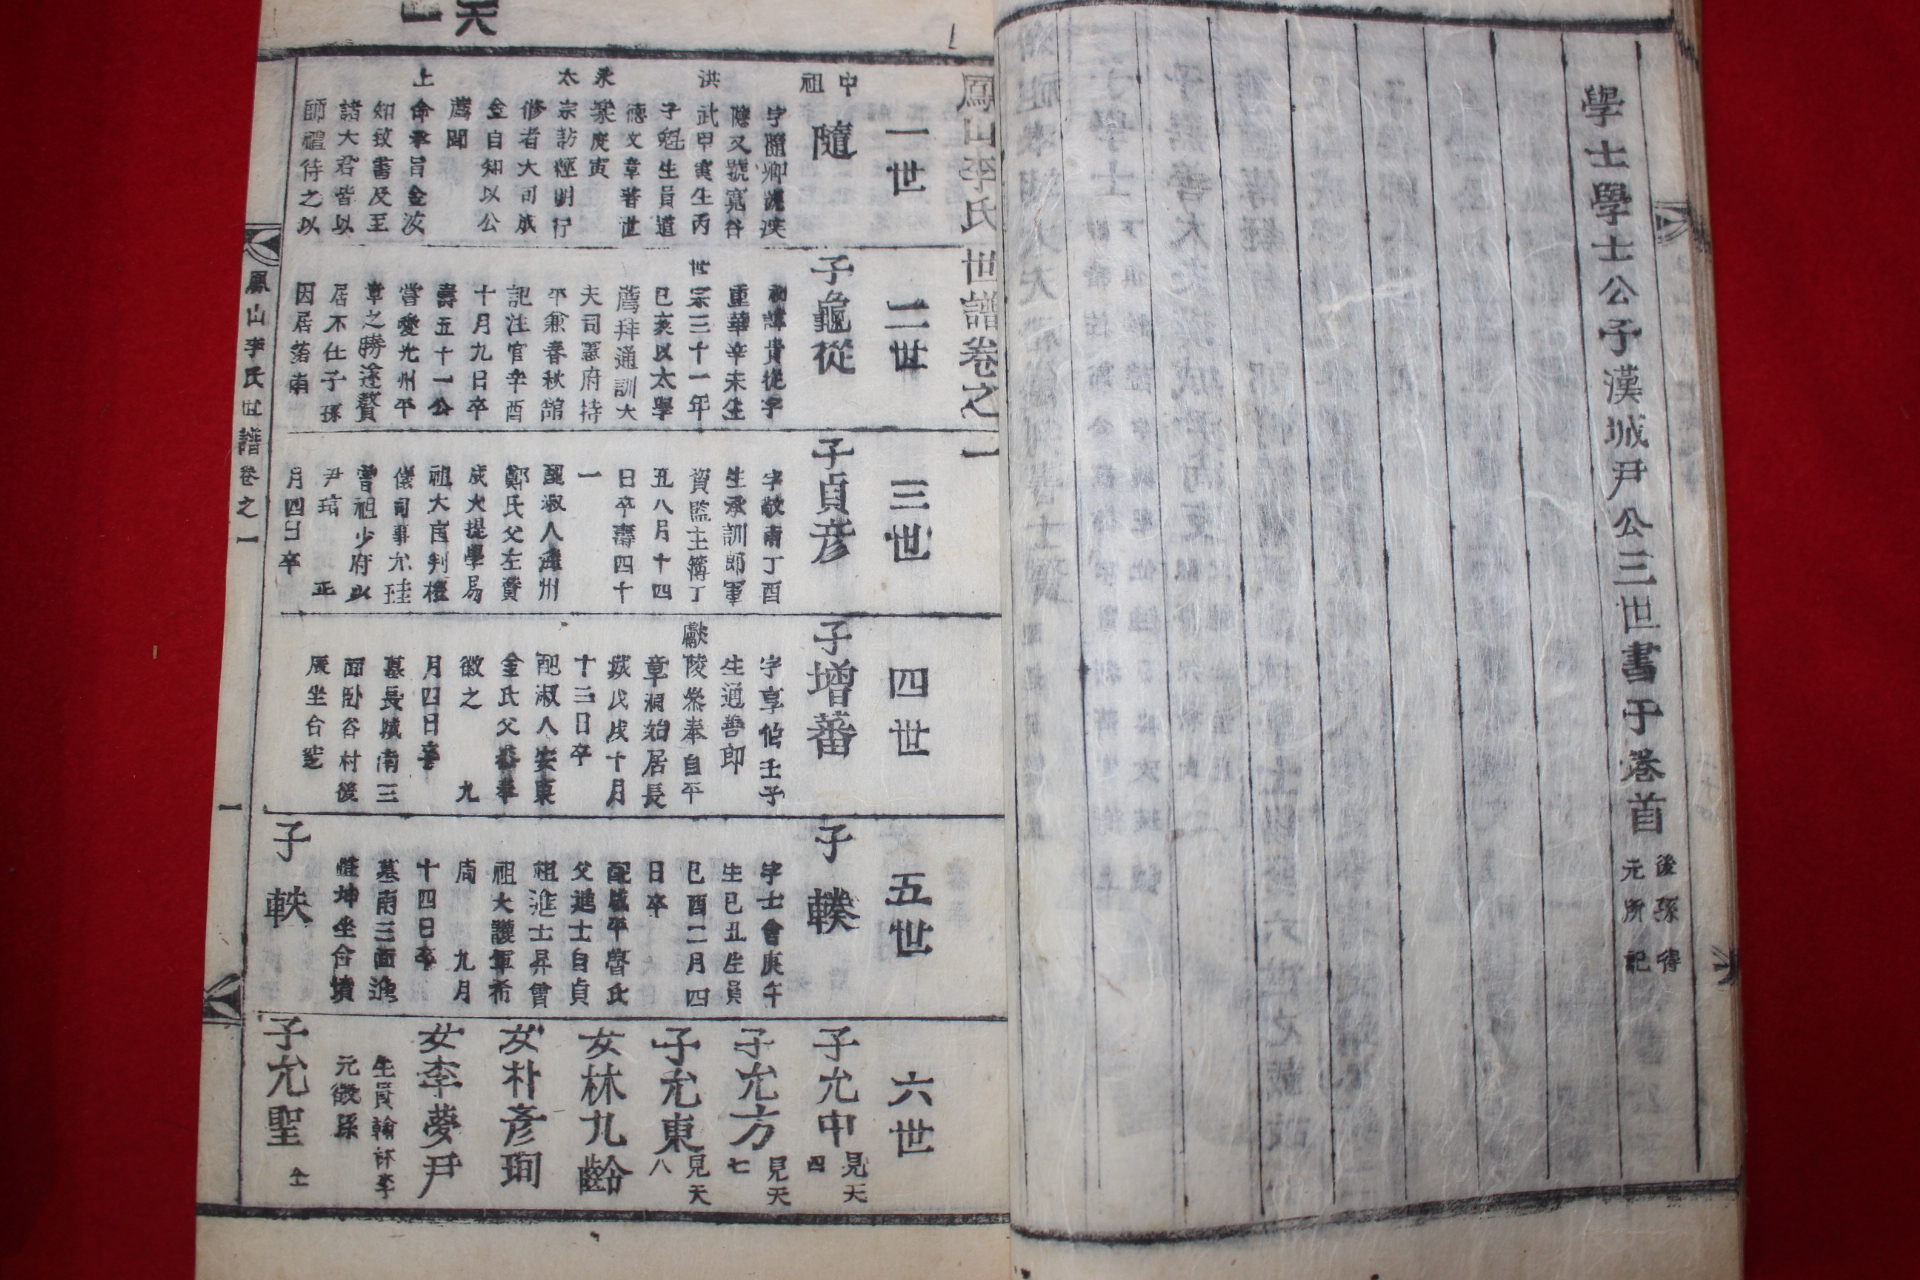 學士學士公子漢城尹公三世書于卷首
後孫得
元所記
天一
鳳山李氏世譜卷之一
一世
中祖
隨
字隨卿
應又號寬谷
洪武甲寅生丙
子魁生員道
德文章著世
永樂庚寅
太宗訪經明行
修者大司成
金自知以公
薦聞
上命奉旨金汝
知致書及至
諸大君皆以
師禮待之以
二世
子龜從
初諱貴從字
重華辛未生
世宗三十一年
己亥以太學
薦拜通訓大
夫司憲府持
平兼春秋館
記注官辛酉
十月九日卒
壽五十一公
嘗愛光州平
章之勝遂贅
居不仕子孫
因居湖南
三世
子貞彦
字敬甫丁酉
生承訓郎軍
資監主簿丁
丑八月十四
日卒壽四十
一
配淑人海州
鄭氏父左賛
成大提學易
祖大匡判禮
儀司事允珪
曾祖少府少
尹琯 正
月四日卒
四世
子增蕃
字享伯壬子
生通善郎
獻陵參奉自平
章洞始居長
城戊戌十月
十三日卒
配淑人安東
金氏父參奉
徵之 九
月四日卒
墓長城南三
面卧谷村後
辰坐合窆
五世
子轃
字士會庚午
生己丑生員
己酉二月四
日卒
配咸平魯氏
父進士自貞
祖進士昇曾
祖大護軍希
周 九月
十四日卒
墓南三面進
燈坤坐合墳
子軼
六世
子允中 見天四
子允方 見天七
子允東 見天八
女林九齡
女朴彥珣
女李夢尹
生員翰林李
元徵孫
子允聖
仝
鳳山李氏世譜卷之一
一